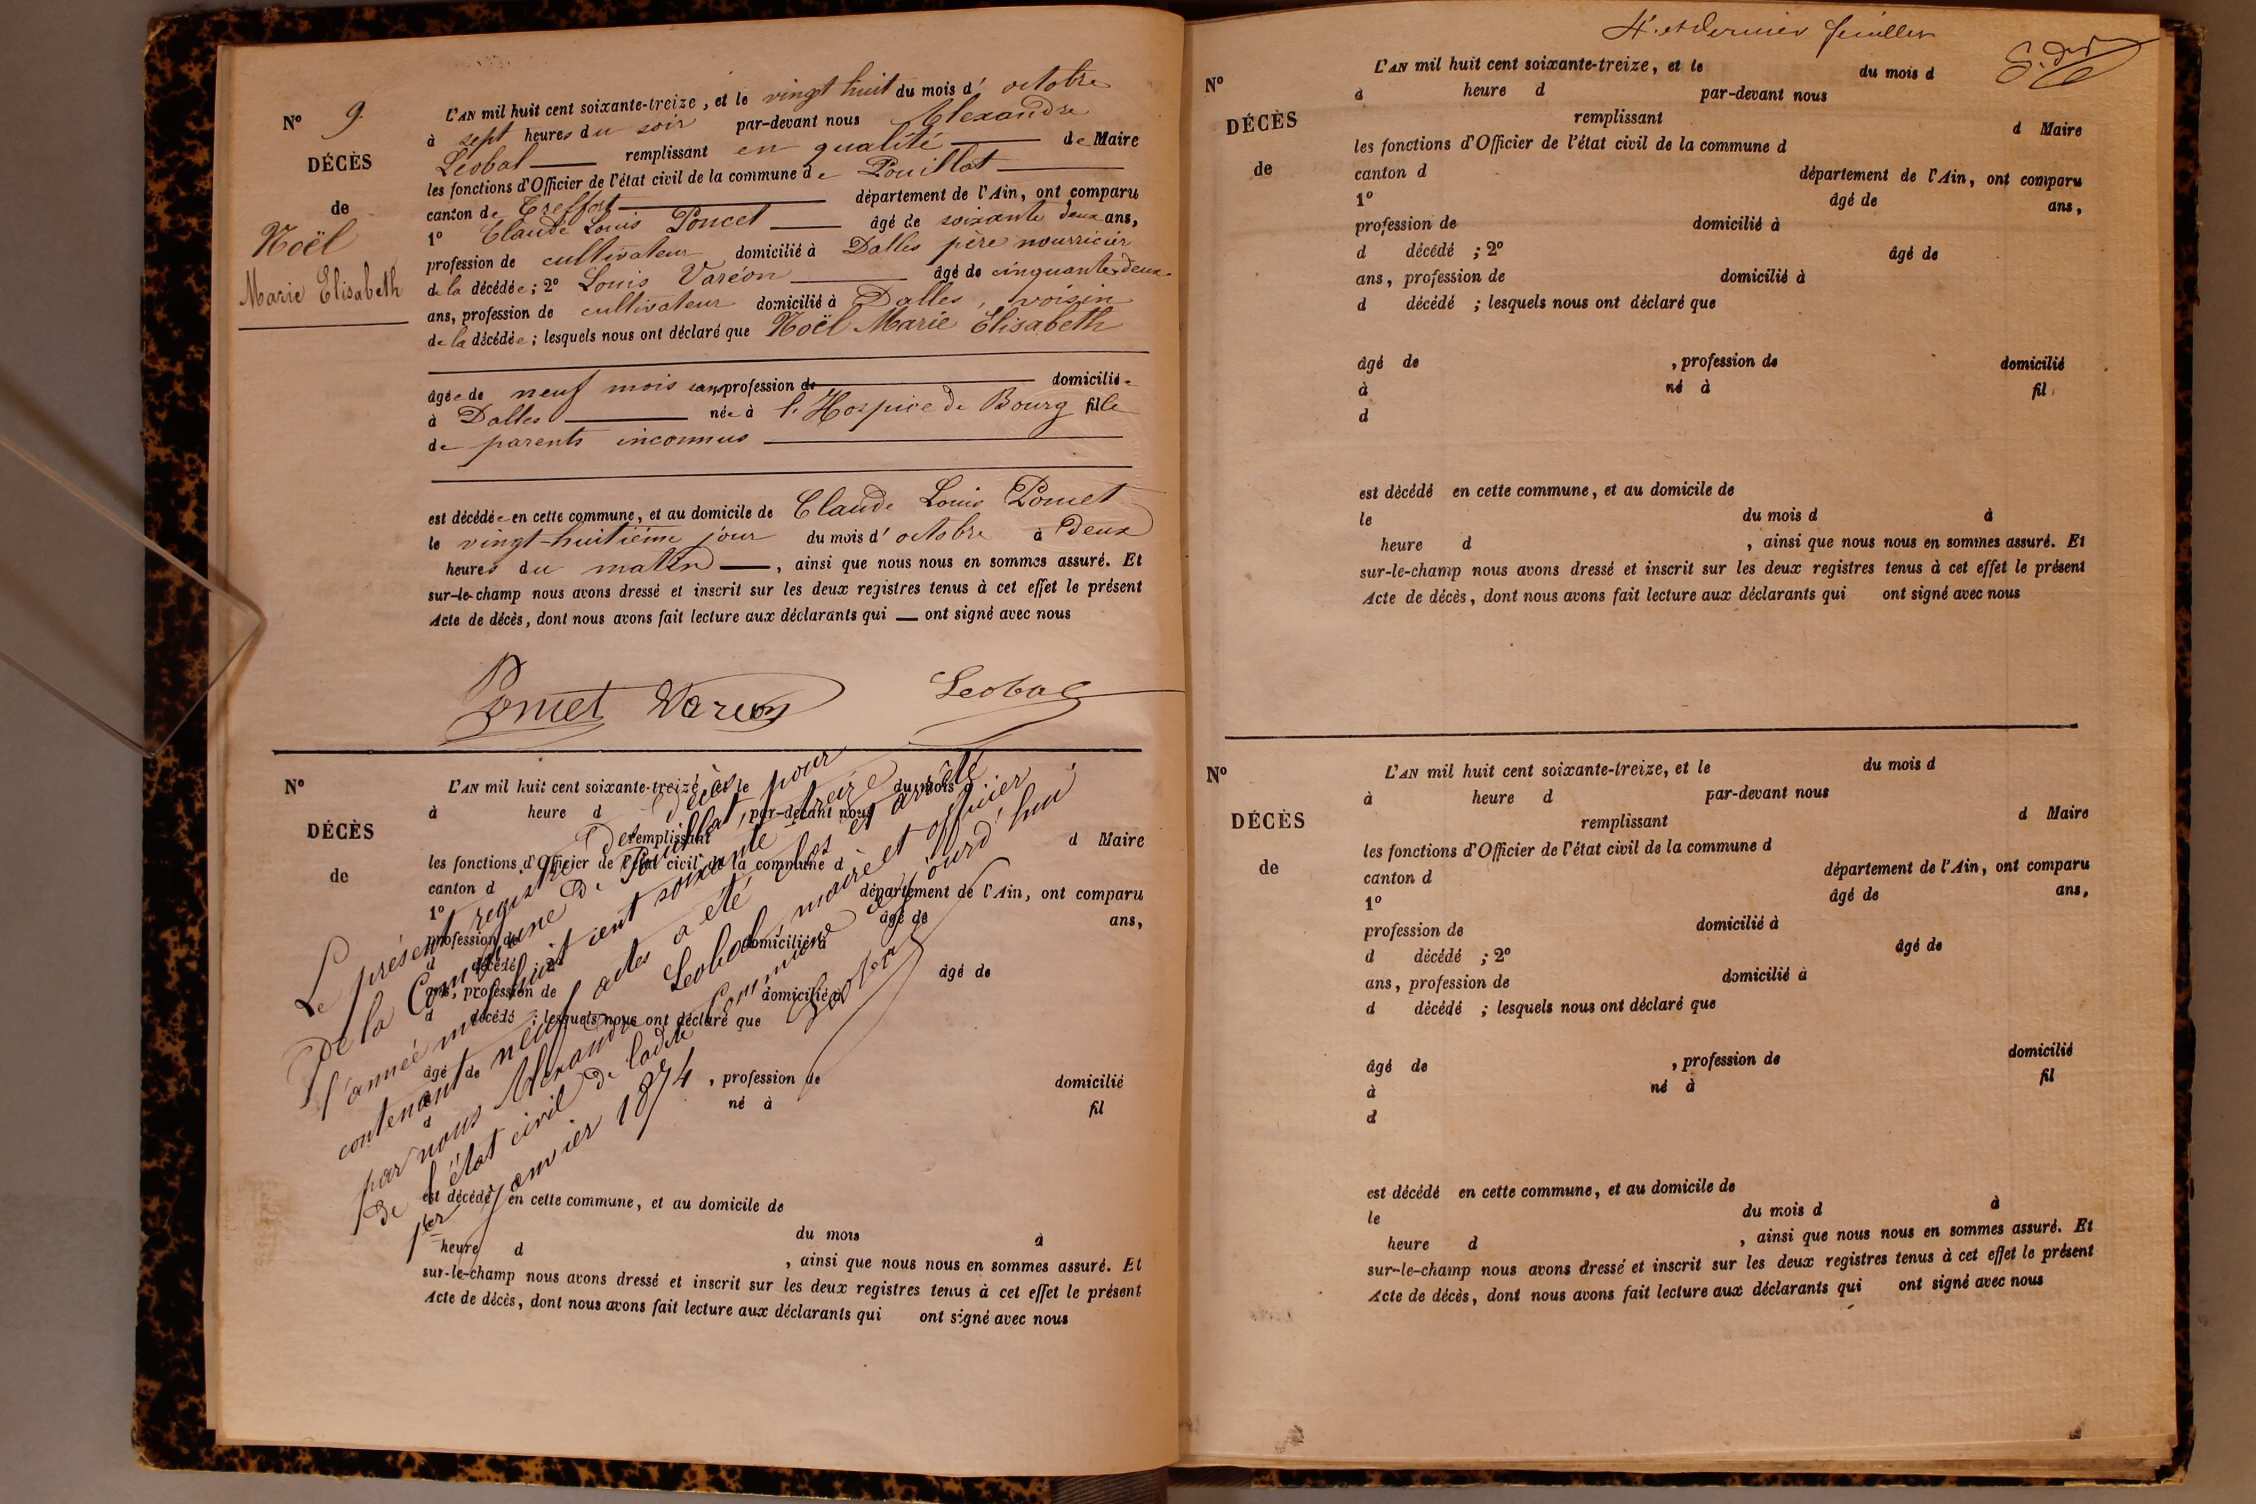 N° 9
DÉCÈS
de
Noël
Marie Elisabeth
L'AN mil huit cent soixante-treize, et le vingt huit du mois d'octobre
à sept heures du soir par-devant nous Alexandre
Léobal remplissant en qualité de Maire
les fonctions d'Officier de l'état civil de la commune de Pouillat
canton de Treffort département de l'Ain, ont comparu
1° Claude Louis Poncet âgé de soixante deux ans,
profession de cultivateur domicilié à Dalles père nourricier
de la décédée ; 2° Louis Varéon âgé de cinquante deux
ans, profession de cultivateur domicilié à Dalles, voisin
de la décédée ; lesquels nous ont déclaré que Noël Marie Elisabeth
âgée de neuf mois sans profession de domiciliée
à Dalles née à l'Hospice de Bourg fille
de parents inconnus
est décédée en cette commune, et au domicile de Claude Louis Poncet
le vingt-huitième jour du mois d'octobre à deux
heures du matin, ainsi que nous nous en sommes assuré. Et
sur-le-champ nous avons dressé et inscrit sur les deux registres tenus à cet effet le présent
Acte de décès, dont nous avons fait lecture aux déclarants qui — ont signé avec nous
Poncet Vareon Leobal
N°
DÉCÈS
de
L'AN mil huit cent soixante-treize, et le du mois d
à heure d par-devant nous
remplissant d Maire
les fonctions d'Officier de l'état civil de la commune d
canton d département de l'Ain, ont comparu
1° âgé de ans,
profession de domicilié à
d décédé ; 2° âgé de
ans, profession de domicilié à
d décédé ; lesquels nous ont déclaré que
âgé de , profession de domicilié
à né à fil
d
est décédé en cette commune, et au domicile de
du mois à
heure d , ainsi que nous nous en sommes assuré. Et
sur-le-champ nous avons dressé et inscrit sur les deux registres tenus à cet effet le présent
Acte de décès, dont nous avons fait lecture aux déclarants qui ont signé avec nous
Le présent registre des décès
de la Commune de Pouillat, pour
l'année mil huit cent soixante-treize
contenant neuf actes a été clos et arrêté
par nous Alexandre Leobal, maire et officier
de l'état civil de ladite commune cejourd'hui
1er janvier 1874
Leobal
4e et dernier feuillet
N°
DÉCÈS
de
L'AN mil huit cent soixante-treize, et le du mois d
à heure d par-devant nous
remplissant d Maire
les fonctions d'Officier de l'état civil de la commune d
canton d département de l'Ain, ont comparu
1° âgé de ans,
profession de domicilié à
d décédé ; 2° âgé de
ans, profession de domicilié à
d décédé ; lesquels nous ont déclaré que
âgé de , profession de domicilié
à né à fil
d
est décédé en cette commune, et au domicile de
le du mois d à
heure d , ainsi que nous nous en sommes assuré. Et
sur-le-champ nous avons dressé et inscrit sur les deux registres tenus à cet effet le présent
Acte de décès, dont nous avons fait lecture aux déclarants qui ont signé avec nous
N°
DÉCÈS
de
L'AN mil huit cent soixante-treize, et le du mois d
à heure d par-devant nous
remplissant d Maire
les fonctions d'Officier de l'état civil de la commune d
canton d département de l'Ain, ont comparu
1° âgé de ans,
profession de domicilié à
d décédé ; 2° âgé de
ans, profession de domicilié à
d décédé ; lesquels nous ont déclaré que
âgé de , profession de domicilié
à né à fil
d
est décédé en cette commune, et au domicile de
le du mois d à
heure d , ainsi que nous nous en sommes assuré. Et
sur-le-champ nous avons dressé et inscrit sur les deux registres tenus à cet effet le présent
Acte de décès, dont nous avons fait lecture aux déclarants qui ont signé avec nous